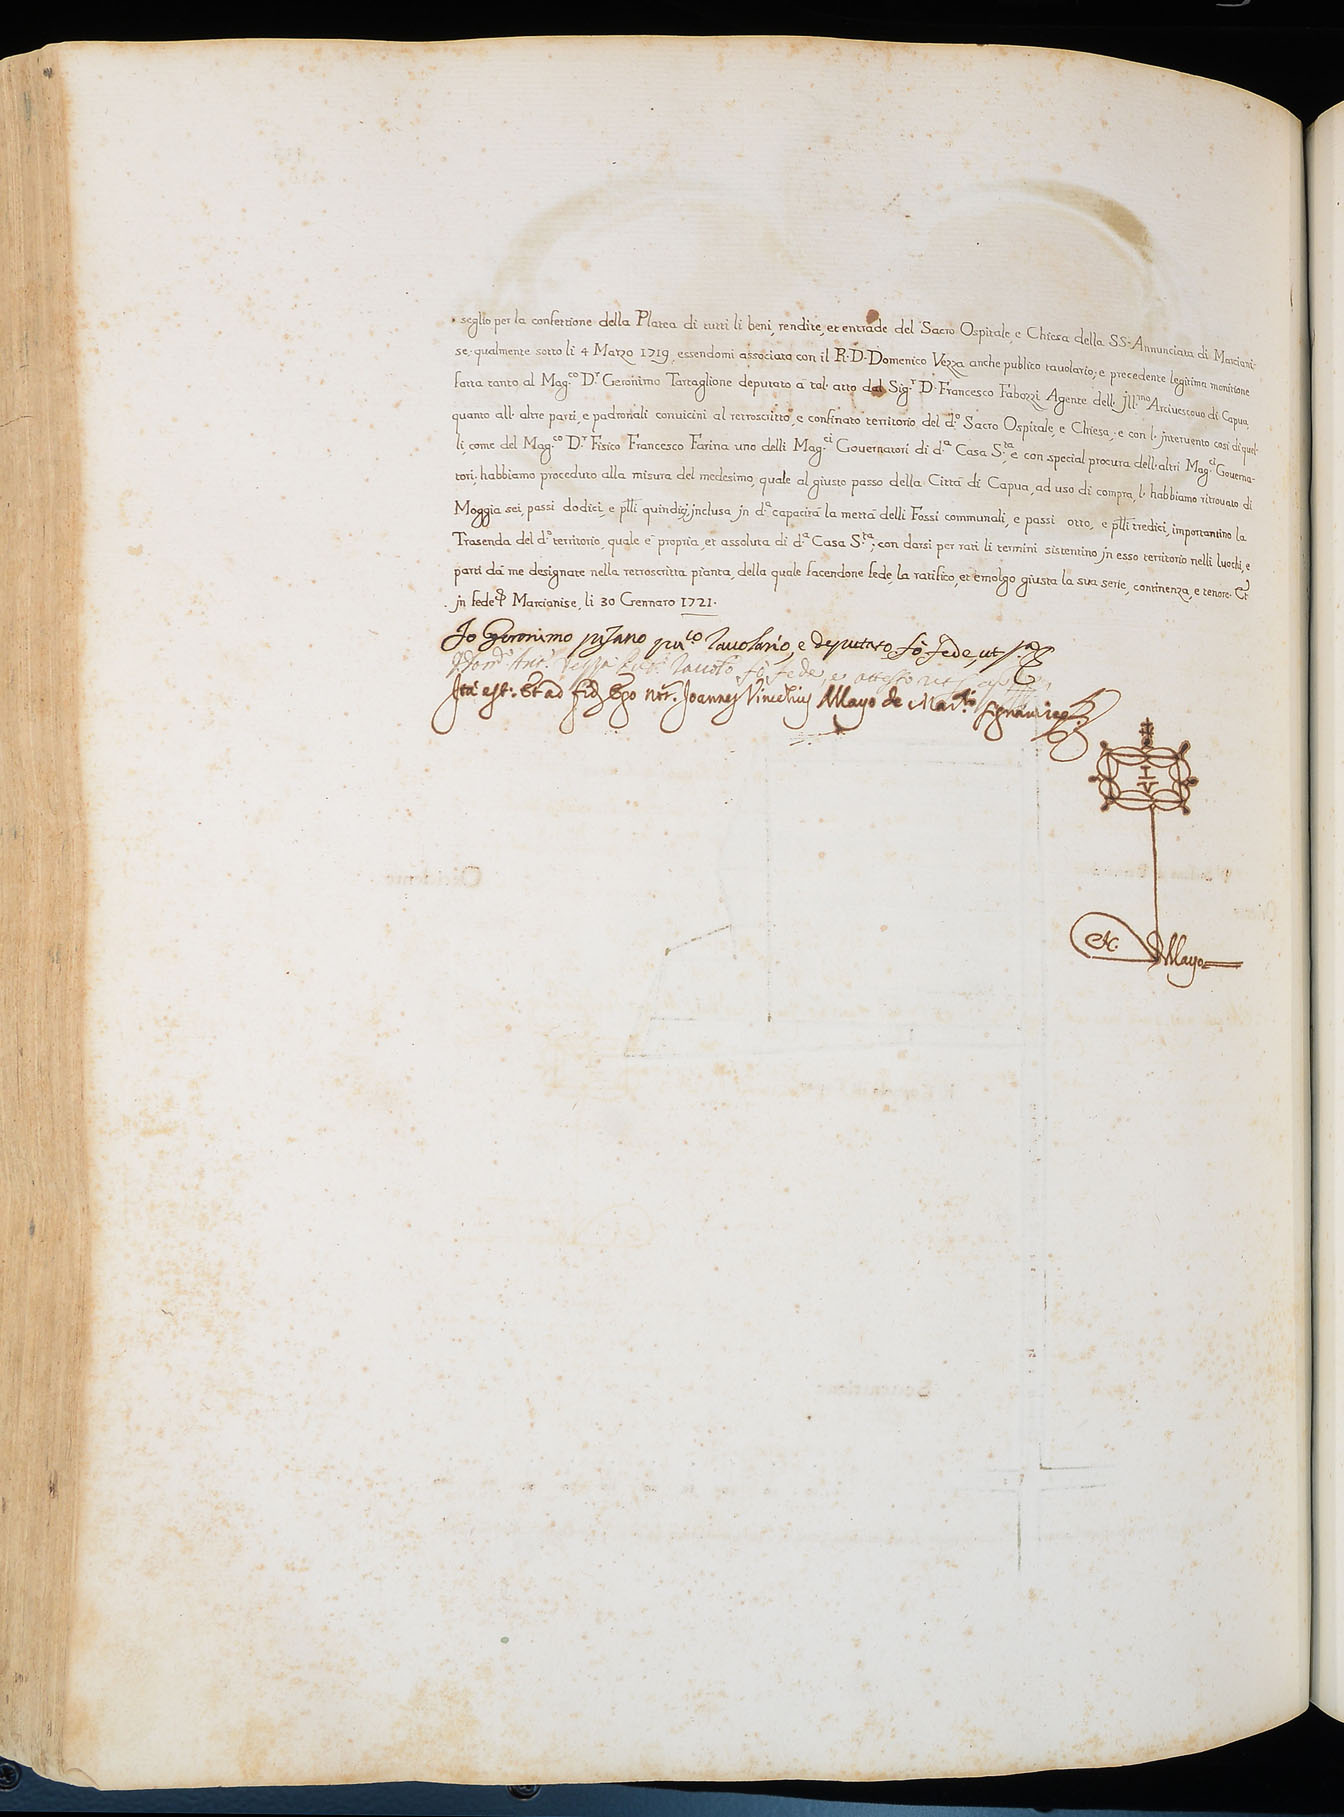 seglio per la confettione della Platea di tutti li beni, rendite, et entrade del Sacro Ospitale, e Chiesa della SS. Annunciata di Marciani-
se, qualmente sotto li 4 Marzo 1719, essendomi associato con il R. D. Domenico Vezza anche publico tavolario; e precedente legitima monitione
fatta tanto al Mag.co D.r Geronimo Tartaglione deputato à tal' atto dal Sig.r D. Francesco Fabozzi Agente dell' Jll.mo Arcivescovo di Capua,
quanto all' altre parti, e padronali convicini al retroscritto, e confinato territorio del d.o Sacro Ospitale, e Chiesa, e con l' jntervento così di quel-
li, come del Mag.co D.r Fisico Francesco Farina uno delli Mag.ci Governatori di d.a Casa S.ta, e con special procura dell' altri Mag.ci Governa-
tori, habbiamo proceduto alla misura del medesimo, quale al giusto passo della Città di Capua, ad uso di compra, l' habbiamo ritrovato di
Moggia sei, passi dodici, e p̃lli quindici, jnclusa jn d.a capacità la mettà delli Fossi communali, e passi otto, e p̃lli tredici, importantino la
Trasenda del d.o territorio, quale è propria, et assoluta di d.a Casa S.ta; con darsi per rati li termini sistentino jn esso territorio nelli luochi, e
parti dà me designate nella retroscritta pianta, della quale facendone fede, la ratifico, et emolgo giusta la sua serie, continenza, e tenore. Et
jn fede &c. Marcianise, li 30 Gennaro 1721.
Io Geronimo pisano pu.co Tavolario, e deputato fò fede, ut s.a
Tavol.o fò fede, et attesto ut s.a
Ita est: Et ad fid. Ego not.r Joannes Vincetius Mayo de Mar.so signavi rog.s
I
V
N. Mayo